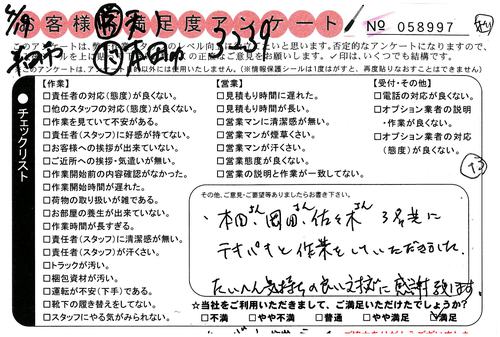 お客様満足度アンケート
№ 058997
3239
✓印は、いくつでも結構です。
このアンケートは、
以外には使用いたしません。(※情報保護シールは1度はがすと、再度貼りなおすことはできません)
チェックリスト
【作業】
□責任者の対応(態度)が良くない。
□他のスタッフの対応(態度)が良くない。
□作業を見ていて不安がある。
□責任者(スタッフ)に好感が持てない。
□お客様への挨拶が出来ていない。
□ご近所への挨拶・気遣いが無い。
□作業開始前の内容確認がなかった。
□作業開始時間が遅れた。
□荷物の取り扱いが雑である。
□お部屋の養生が出来ていない。
□作業時間が長すぎる。
□責任者(スタッフ)に清潔感が無い。
□責任者(スタッフ)が汗くさい。
□トラックが汚い。
□梱包資材が汚い。
□運転が不安(下手)である。
□靴下の履き替えをしてない。
□スタッフにやる気がみられない。
【営業】
□見積もり時間に遅れた。
□見積もり時間が長い。
□営業マンに清潔感が無い。
□営業マンが煙草くさい。
□営業マンが汗くさい。
□営業態度が良くない。
□営業の説明と作業が一致してない。
【受付・その他】
□電話の対応が良くない。
□オプション業者の説明
・作業が良くない。
□オプション業者の対応
(態度)が良くない。
その他、ご意見・ご要望等ありましたらお書き下さい。
・本田さん、岡田さん、佐々木さん 3名共に
テキパキと作業をしていただきました。
たいへん気持ちの良い支援に感謝致します。
☆当社をご利用いただきまして、ご満足いただけたでしょうか?
□不満 □やや不満 □普通 □やや満足 ☑満足